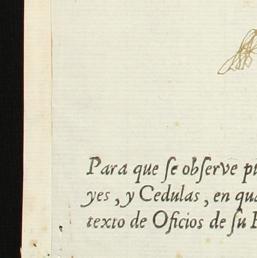 Para que ſe obſerve
yes, y Cedulas, en
texto de Oficios de ſu